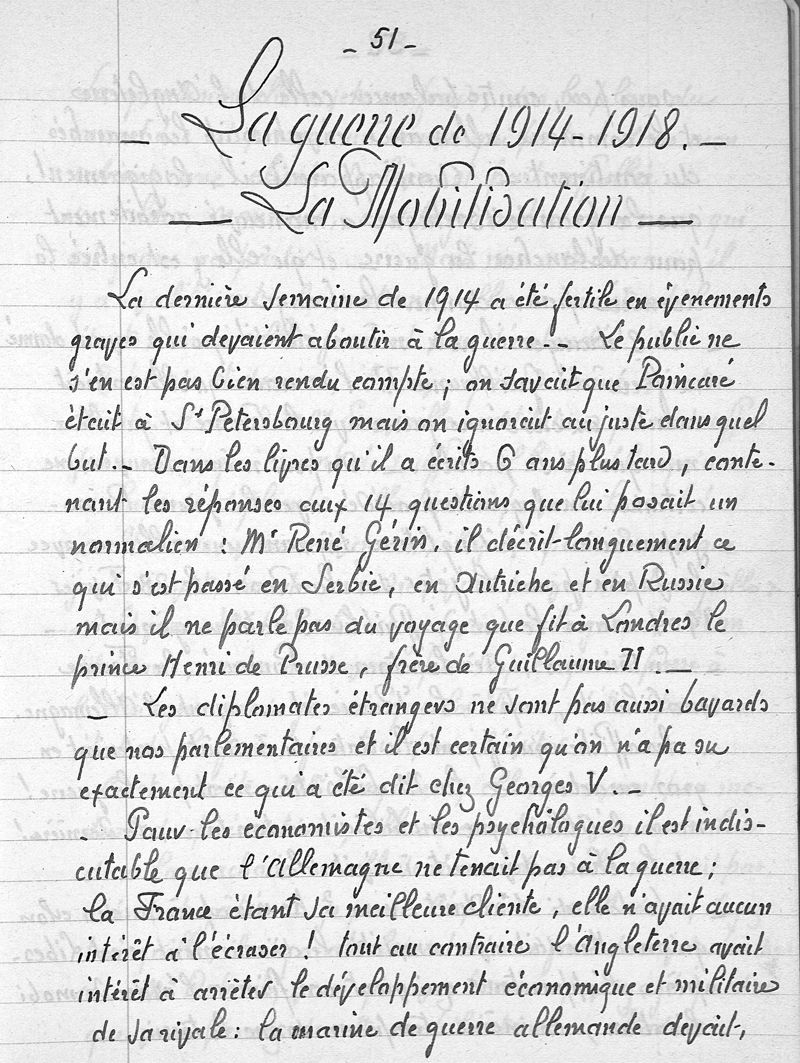 - 51 -
- La guerre de 1914-1918. -
- La Mobilisation -
La dernière semaine de 1914 a été fertile en évenements
graves qui devaient aboutir à la guerre -- Le public ne
s'en est pas bien rendu compte, on savait que Poincaré
était à St Petersbourg mais on ignorait au juste dans quel
but -- Dans les livres qu'il a écrits 6 ans plus tard, conte-
nant les réponses aux 14 questions que lui posait un
normalien : Mr René Gérin, il décrit longuement ce
qui s'est passé en Serbie, en Autriche et en Russie
mais il ne parle pas du voyage que fit à Londres le
prince Henri de Prusse, frère de Guillaume II. -
- Les diplomates étrangers ne sont pas aussi bavards
que nos parlementaires et il est certain qu'on n'a pa su
exactement ce qui a été dit chez Georges V. --
- Pour les économistes et les psychologues il est indis-
cutable que l'Allemagne ne tenait pas à la guerre ;
la France étant sa meilleure cliente, elle n'avait aucun
intérêt à l'écraser ! tout au contraire l'Angleterre avait
intérêt à arrêter le développement économique et militaire
de sa rivale : la marine de guerre allemande devait,